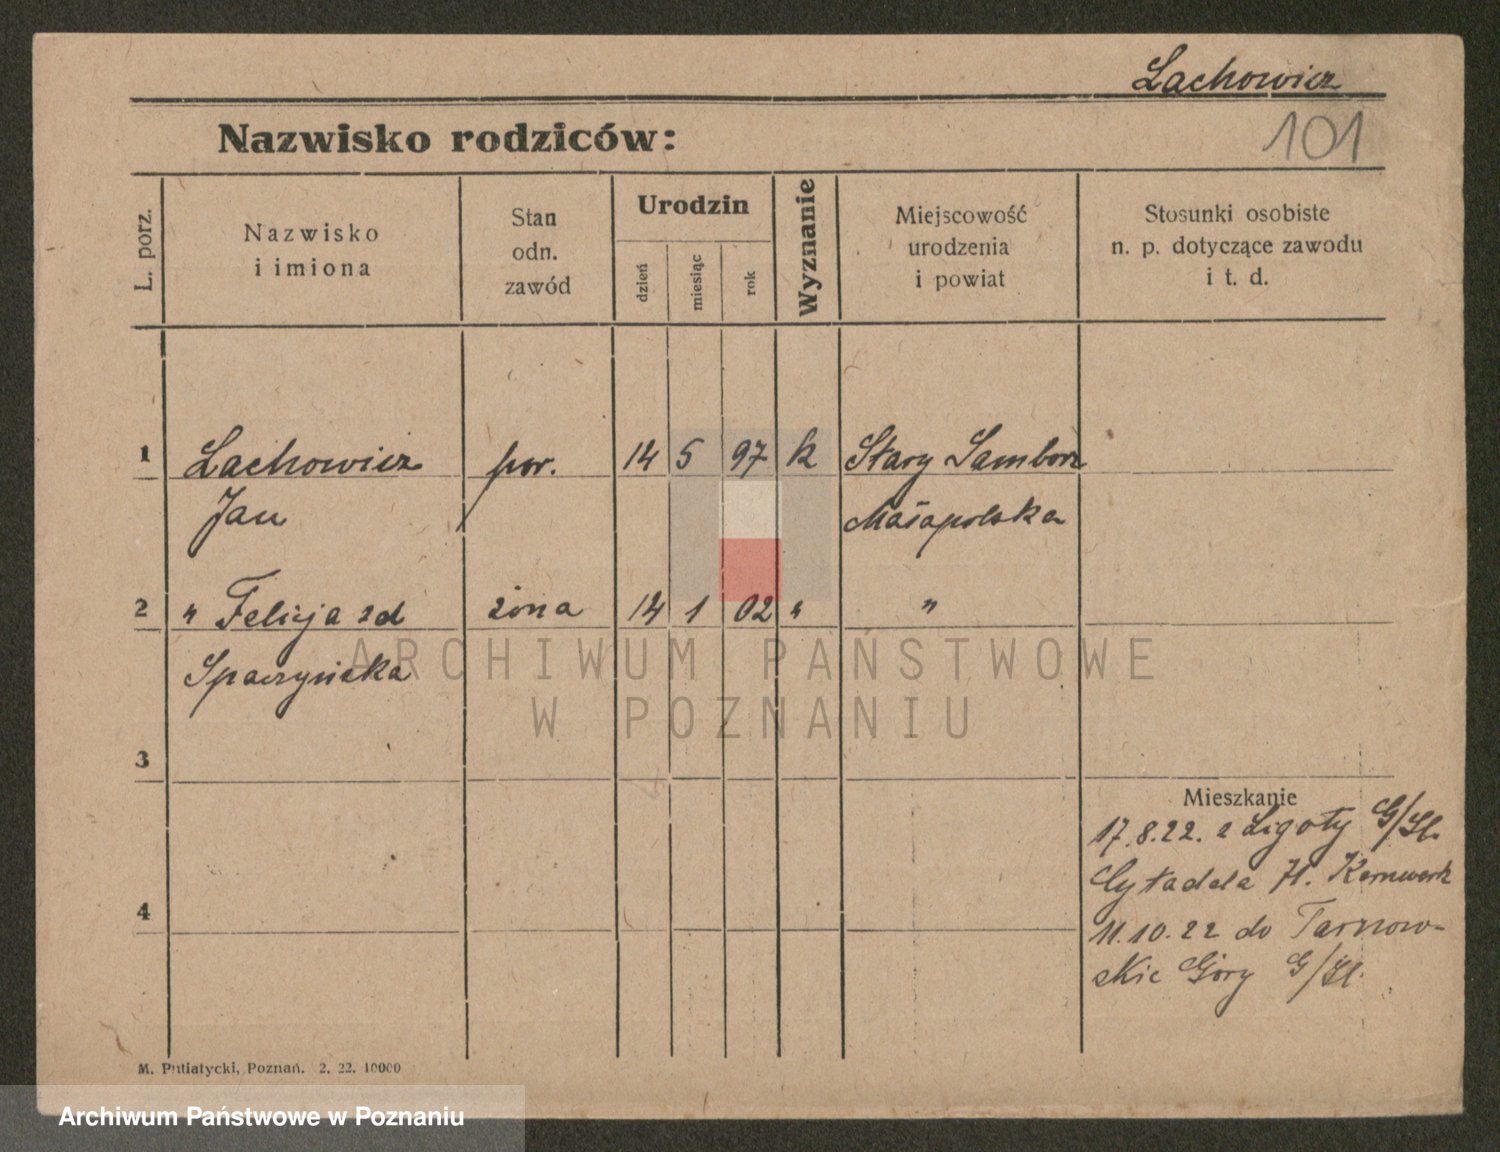 Lachowicz
101
Nazwisko rodziców:
L. porz.
Nazwisko
i imiona
Stan
odn.
zawód
Urodzin
dzień
miesiąc
rok
Wyznanie
Miejscowość
urodzenia
i powiat
Stosunki osobiste
n. p. dotyczące zawodu
i t. d.
1 Lachowicz por. 14 5 97 k Stary Sambor
Jan Małopolska
2 " Felicja zd żona 14 1 02 " "
Spaczyńska
ARCHIWUM PAŃSTWOWE
W POZNANIU
3
Mieszkanie
17.8.22. z Ligoty G/Śl.
Cytadela H. Kernwerk
4
11.10.22 do Tarnow-
skie Góry G/Śl.
M. Putiatycki, Poznań. 2. 22. 10000
Archiwum Państwowe w Poznaniu